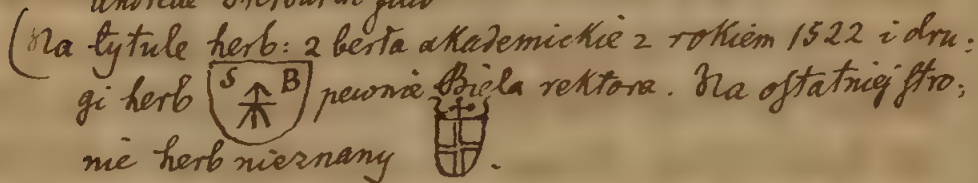 (Na tytule herb: 2 berła akademickie z rokiem 1522 i dru:
gi herb S B pewnie Biela rektora. Na ostatniej stro:
nie herb nieznany .